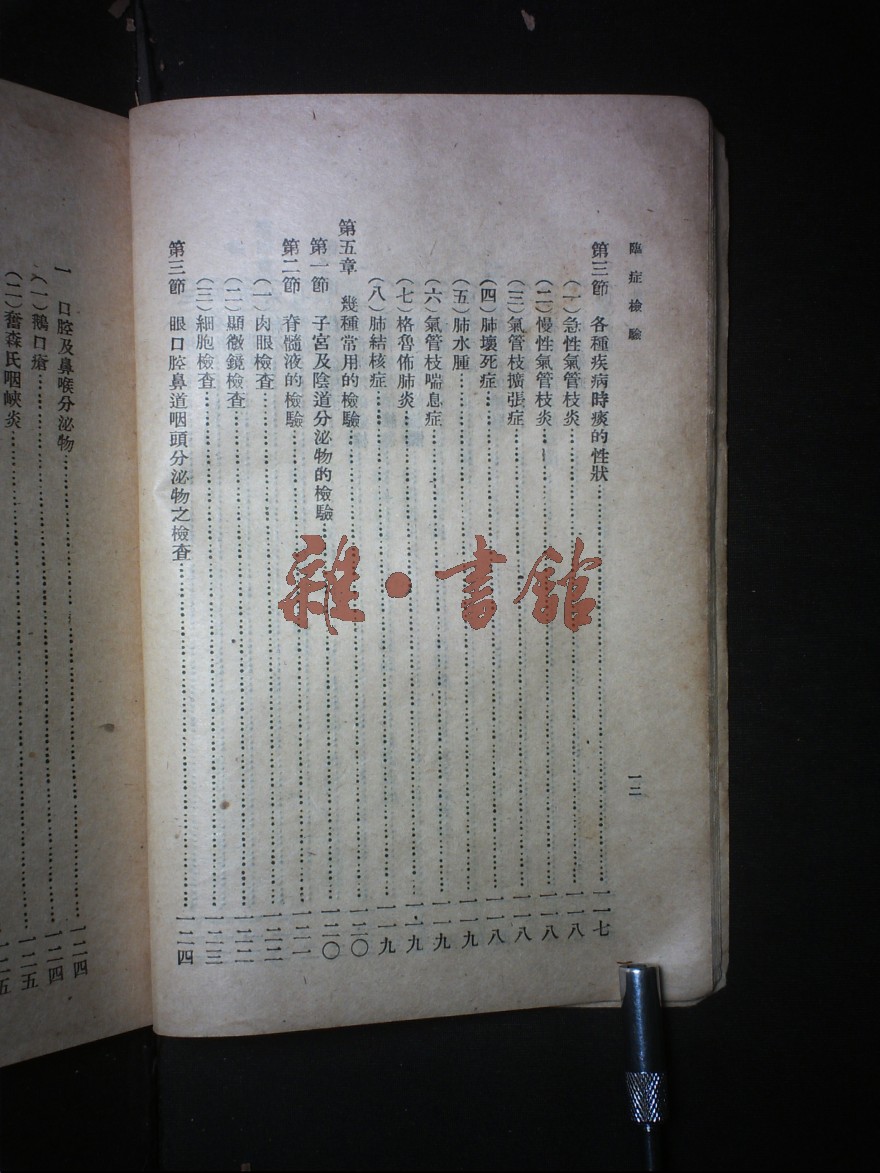 臨症檢驗 一二
第三節 各種疾病時痰的性狀……一一七
(一)急性氣管枝炎……一一八
(二)慢性氣管枝炎……一一八
(三)氣管枝擴張症……一一八
(四)肺壞死症……一一八
(五)肺水腫……一一九
(六)氣管枝喘息症……一一九
(七)格魯佈肺炎……一一九
(八)肺結核症……一一九
第五章 幾種常用的檢驗……一二〇
第一節 子宮及陰道分泌物的檢驗……一二〇
第二節 脊髓液的檢驗……一二一
(一)肉眼檢查……一二二
(二)顯微鏡檢查……一二二
(三)細胞檢查……一二三
第三節 眼口腔鼻道咽頭分泌物之檢查……一二四
一 口腔及鼻喉分泌物……一二四
(一)鵝口瘡……一二四
(二)奮森氏咽峽炎……一二五
一二五
雜·書館